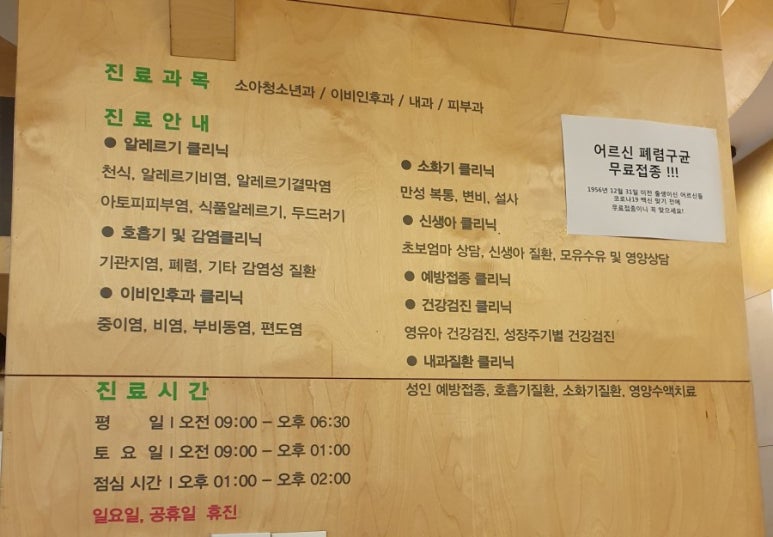 진료과목 소아청소년과 / 이비인후과 / 내과 / 피부과
진료안내
● 알레르기 클리닉
천식, 알레르기비염, 알레르기결막염
아토피피부염, 식품알레르기, 두드러기
● 호흡기 및 감염클리닉
기관지염, 폐렴, 기타 감염성 질환
● 이비인후과 클리닉
중이염, 비염, 부비동염, 편도염
● 소화기 클리닉
만성 복통, 변비, 설사
● 신생아 클리닉
초보엄마 상담, 신생아 질환, 모유수유 및 영양상담
● 예방접종 클리닉
● 건강검진 클리닉
영유아 건강검진, 성장주기별 건강검진
● 내과질환 클리닉
성인 예방접종, 호흡기질환, 소화기질환, 영양수액치료
어르신 폐렴구균
무료접종 !!!
1956년 12월 31일 이전 출생이신 어르신들
코로나19 백신 맞기 전에
무료접종이니 꼭 맞으세요!
진료시간
평 일 | 오전 09:00 – 오후 06:30
토 요 일 | 오전 09:00 – 오후 01:00
점심 시간 | 오후 01:00 – 오후 02:00
일요일, 공휴일 휴진